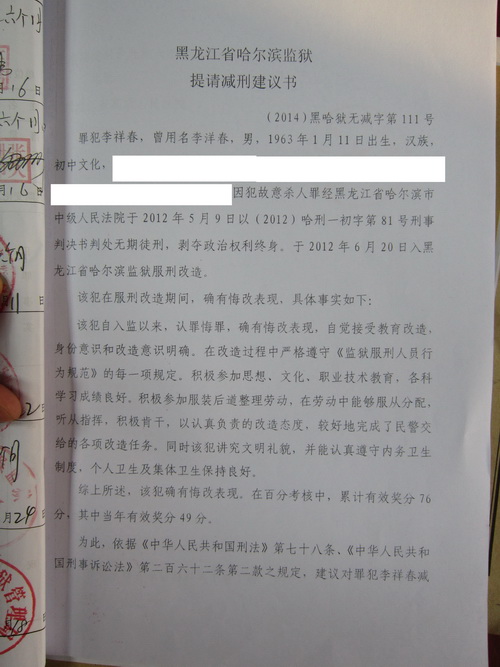 六个月
月16日
六个月
月16日
个月
月11日
2日
个月
月24日
管理
黑龙江省哈尔滨监狱
提请减刑建议书
（2014）黑哈狱无减字第 111 号
罪犯李祥春，曾用名李洋春，男，1963 年 1 月 11 日出生，汉族，
初中文化，
因犯故意杀人罪经黑龙江省哈尔滨市
中级人民法院于 2012 年 5 月 9 日以（2012）哈刑一初字第 81 号刑事
判决书判处无期徒刑，剥夺政治权利终身。于 2012 年 6 月 20 日入黑
龙江省哈尔滨监狱服刑改造。
该犯在服刑改造期间，确有悔改表现，具体事实如下：
该犯自入监以来，认罪悔罪，确有悔改表现，自觉接受教育改造，
身份意识和改造意识明确。在改造过程中严格遵守《监狱服刑人员行
为规范》的每一项规定。积极参加思想、文化、职业技术教育，各科
学习成绩良好。积极参加服装后道整理劳动，在劳动中能够服从分配，
听从指挥，积极肯干，以认真负责的改造态度，较好地完成了民警交
给的各项改造任务。同时该犯讲究文明礼貌，并能认真遵守内务卫生
制度，个人卫生及集体卫生保持良好。
综上所述，该犯确有悔改表现。在百分考核中，累计有效奖分 76
分，其中当年有效奖分 49 分。
为此，依据《中华人民共和国刑法》第七十八条、《中华人民共和
国刑事诉讼法》第二百六十二条第二款之规定，建议对罪犯李祥春减